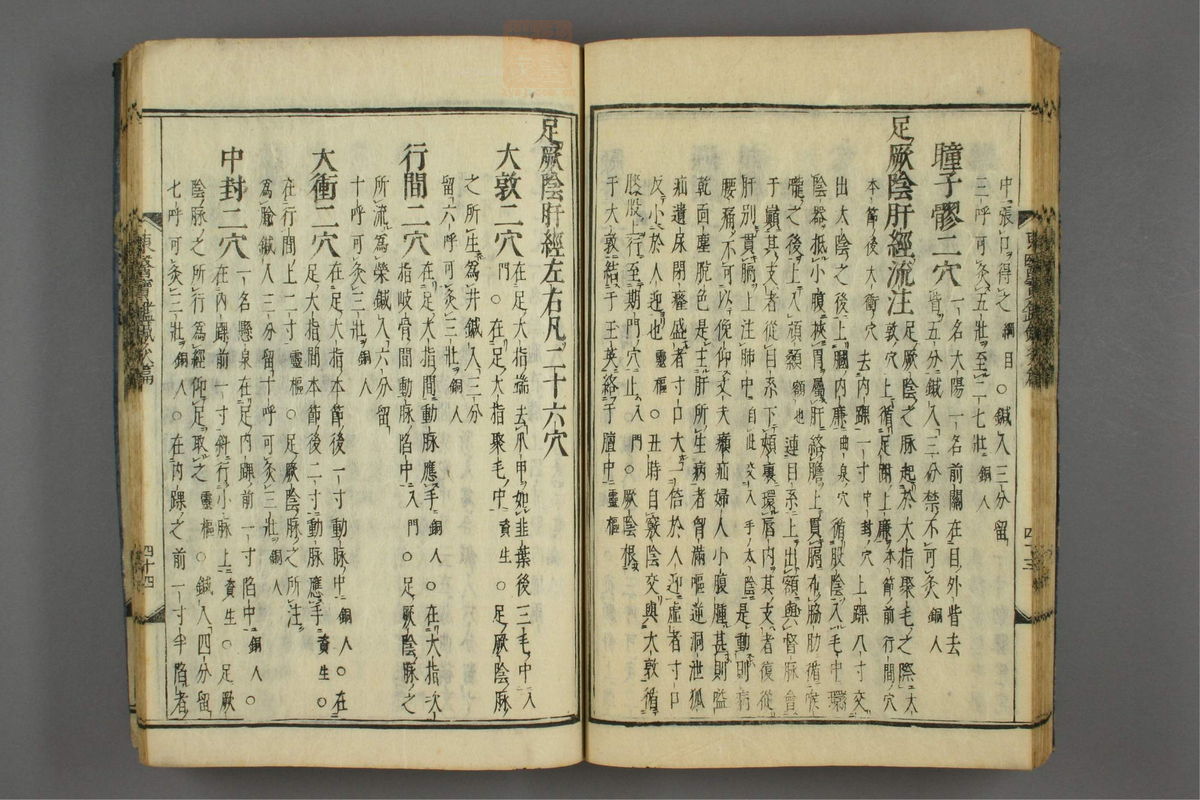 中張口得之綱目○鍼入三分留
三呼可灸五壯至二七壯銅人
瞳子髎二穴一名大陽一名前關在目外眥去
眥五分鍼入三分禁不可灸銅人
足厥陰肝經流注足厥陰之脉起於大指聚毛之際大
敦穴上循足跗上廉本節前行間穴
本節後大衝穴去內踝一寸中封穴上踝八寸交
出太陰之後上膕內廉曲泉穴循股陰入毛中環
陰器抵小腹挾胃屬肝絡膽上貫膈布脇肋循喉
嚨之後上入頏顙顙也連目系上出額與督脉會
于巓其支者從目系下頰裏環唇內其支者復從
肝別貫膈上注肺中自此交入手太陰是動則病
腰痛不可以俛仰丈夫㿉疝婦人小腹腫甚則嗌
乾面塵脫色是主肝所生病者胷滿嘔逆洞泄狐
疝遺尿閉癃盛者寸口大一倍於人迎虛者寸口
反小於人迎也靈樞○丑時自敦陰交與大敦循
股上行至期門穴止入門○厥陰根
于大敦結于玉英絡于膻中靈樞
足厥陰肝經左右凡二十六穴
大敦二穴在足大指端去爪甲如韭葉後三毛中入
門○在足大指聚毛中資生○足厥陰脉
之所生爲井鍼入三分
留六呼可灸三壯銅人
行間二穴在足大指間動脉應手銅人○在大指次
指岐骨間動脉陷中入門○足厥陰脉之
所流爲榮鍼入六分留
十呼可灸三壯銅人
大衝二穴在足大指本節後二寸動脉中銅人○在
足大指間本節後二寸動脉應手資生○
在行間上二寸靈樞○足厥陰脉之所注
爲腧鍼入三分留十呼可灸三壯銅人
中封二穴一名懸泉在足內踝前一寸陷中銅人○
在內踝前一寸斜行小脉上資生○足厥
陰脉之所行爲經仰足取之靈樞○鍼入四分留
七呼可灸三壯銅人○在內踝之前一寸半陷者
東醫寶鑑鍼灸篇
四十四